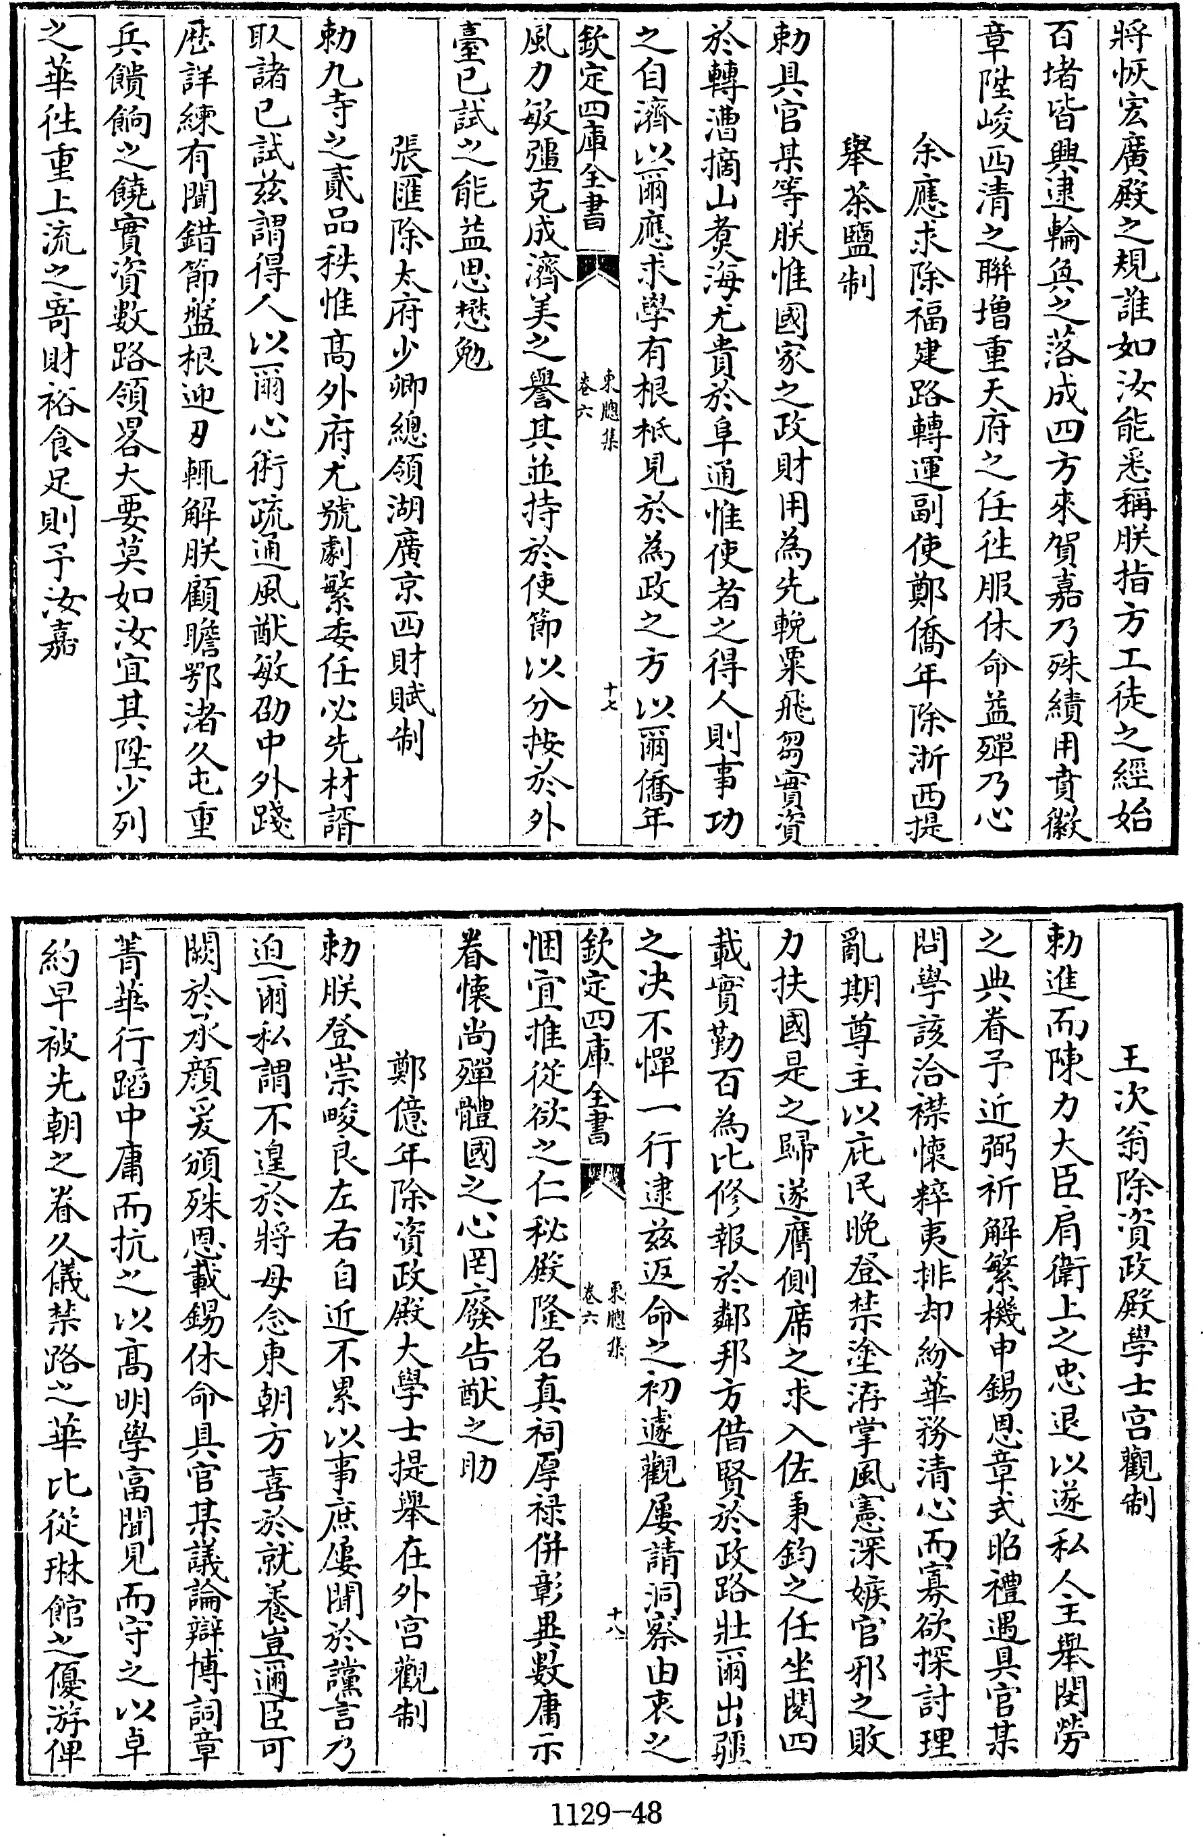 將恢宏廣殿之規誰如汝能悉稱朕指方工徒之經始
百堵皆興逮輪奐之落成四方來賀嘉乃殊績用賁徽
章陞峻西清之聯增重天府之任徃服休命益殫乃心
余應求除福建路轉運副使鄭僑年除浙西提
舉茶鹽制
勅具官某等朕惟國家之政財用為先輓粟飛芻實資
於轉漕摘山煑海尤貴於阜通惟使者之得人則事功
之自濟以爾應求學有根柢見於為政之方以爾僑年
欽定四庫全書
東牕集
卷六
十七
風力敏彊克成濟美之譽其並持於使節以分按於外
臺已試之能益思懋勉
張匯除太府少卿總領湖廣京西財賦制
勅九寺之貳品秩惟髙外府尤號劇繁委任必先材諝
取諸已試兹謂得人以爾心術疏通風猷敏劭中外踐
歴詳練有聞錯節盤根迎刃輒解朕顧瞻鄂渚久屯重
兵饋餉之饒實資數路領畧大要莫如汝宜其陞少列
之華徃重上流之寄財裕食足則予汝嘉
王次翁除資政殿學士宫觀制
勅進而陳力大臣肩衛上之忠退以遂私人主舉閔勞
之典眷予近弼祈解繁機申錫恩章式昭禮遇具官某
問學該洽襟懷粹夷排却紛華務清心而寡欲探討理
亂期尊主以庇民晚登禁塗洊掌風憲深嫉官邪之敗
力扶國是之歸遂膺側席之求入佐秉鈞之任坐閱四
載實勤百為比修報於鄰邦方借賢於政路壯爾出疆
之决不憚一行逮兹返命之初遽觀屢請洞察由衷之
欽定四庫全書
東牕集
卷六
十八
悃宜推從欲之仁秘殿隆名真祠厚禄併彰異數庸示
眷懷尚殫體國之心罔廢告猷之助
鄭億年除資政殿大學士提舉在外宫觀制
勅朕登崇畯良左右自近不累以事庶屢聞於讜言乃
迫爾私謂不遑於將母念東朝方喜於就養豈邇臣可
闕於承顔爰頒殊恩載錫休命具官某議論辯博詞章
菁華行蹈中庸而抗之以髙明學富聞見而守之以卓
約早被先朝之眷久儀禁路之華比從琳館之優游俾
1129-48